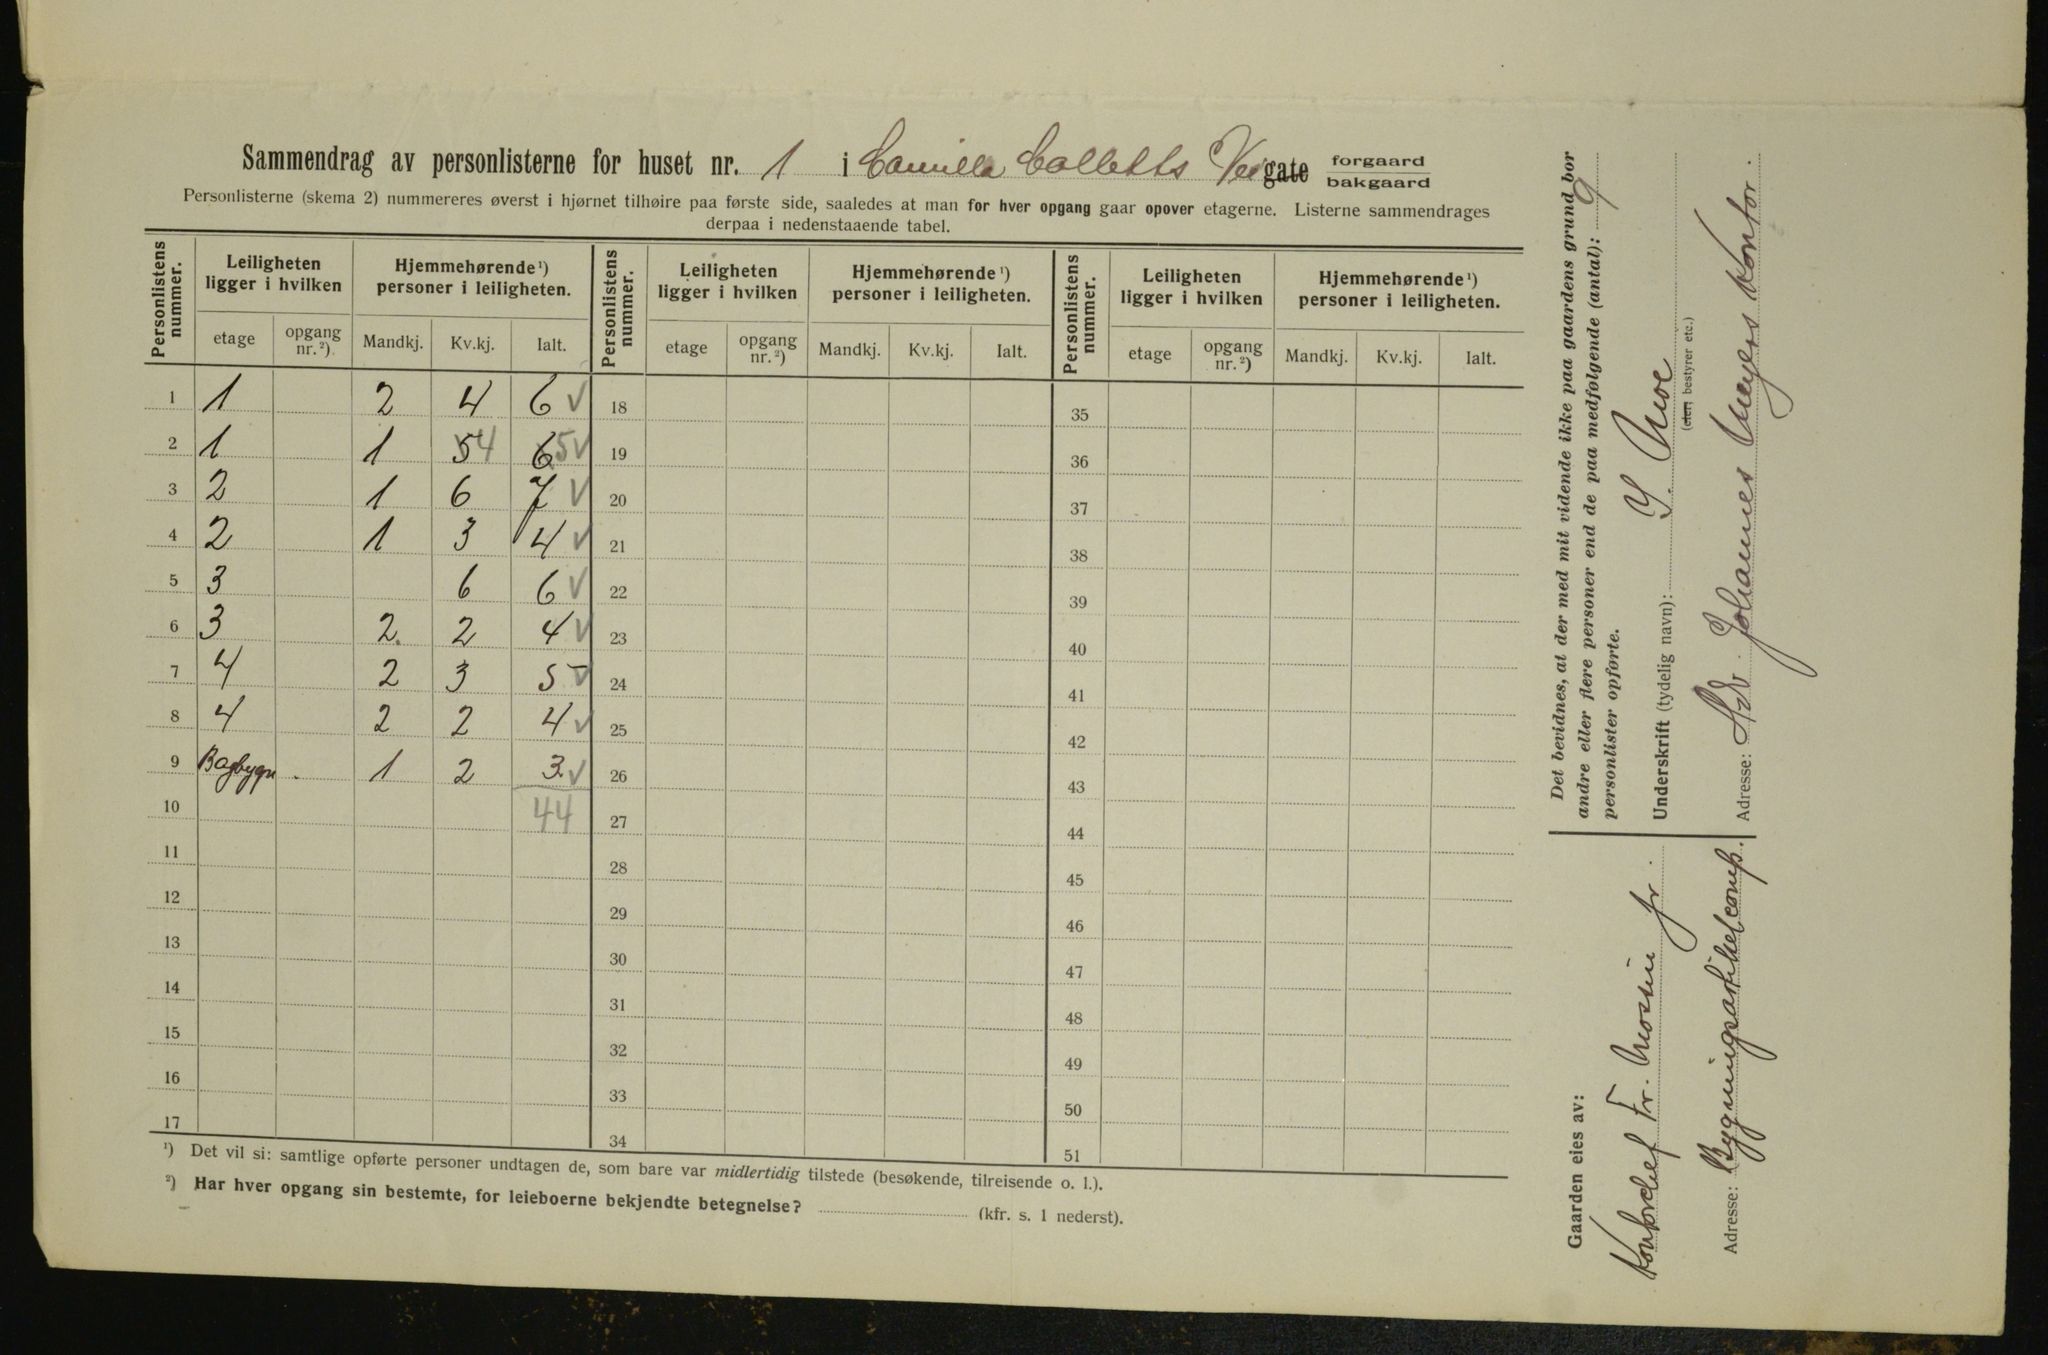 Sammendrag av personlisterne for huset nr. 1 i Camilla Colletts Vei gate forgaard bakgaard
Personlisterne (skema 2) nummereres øverst i hjørnet tilhøire paa første side, saaledes at man for hver opgang gaar opover etagerne. Listerne sammendrages
derpaa i nedenstaaende tabel.
Personlistens nummer. Leiligheten ligger i hvilken Hjemmehørende ¹) personer i leiligheten. Personlistens nummer. Leiligheten ligger i hvilken Hjemmehørende ¹) personer i leiligheten. Personlistens nummer. Leiligheten ligger i hvilken Hjemmehørende ¹) personer i leiligheten.
etage opgang nr. ²) Mandkj. Kv.kj. Ialt. etage opgang nr. ²) Mandkj. Kv.kj. Ialt. etage opgang nr. ²) Mandkj. Kv.kj. Ialt.
1 1 2 4 6 ✓ 18 35
2 1 1 5 4 6 5 ✓ 19 36
3 2 1 6 7 ✓ 20 37
4 2 1 3 4 ✓ 21 38
5 3 6 6 ✓ 22 39
6 3 2 2 4 ✓ 23 40
7 4 2 3 5 ✓ 24 41
8 4 2 2 4 ✓ 25 42
9 Bagbygn. 1 2 3 ✓ 26 43
10 44 27 44
11 28 45
12 29 46
13 30 47
14 31 48
15 32 49
16 33 50
17 34 51
¹) Det vil si: samtlige opførte personer undtagen de, som bare var midlertidig tilstede (besøkende, tilreisende o. l.).
²) Har hver opgang sin bestemte, for leieboerne bekjendte betegnelse? (kfr. s. 1 nederst).
Det bevidnes, at der med mit vidende ikke paa gaardens grund bor
andre eller flere personer end de paa medfølgende (antal): 9
personlister opførte.
Underskrift (tydelig navn): I. Moe
(eier, bestyrer etc.)
Adresse: Adr. Johannes Meyers Kontor.
Gaarden eies av:
Kontorchef Fr. Mossin jr.
Adresse: Bygningsartikelcomp.